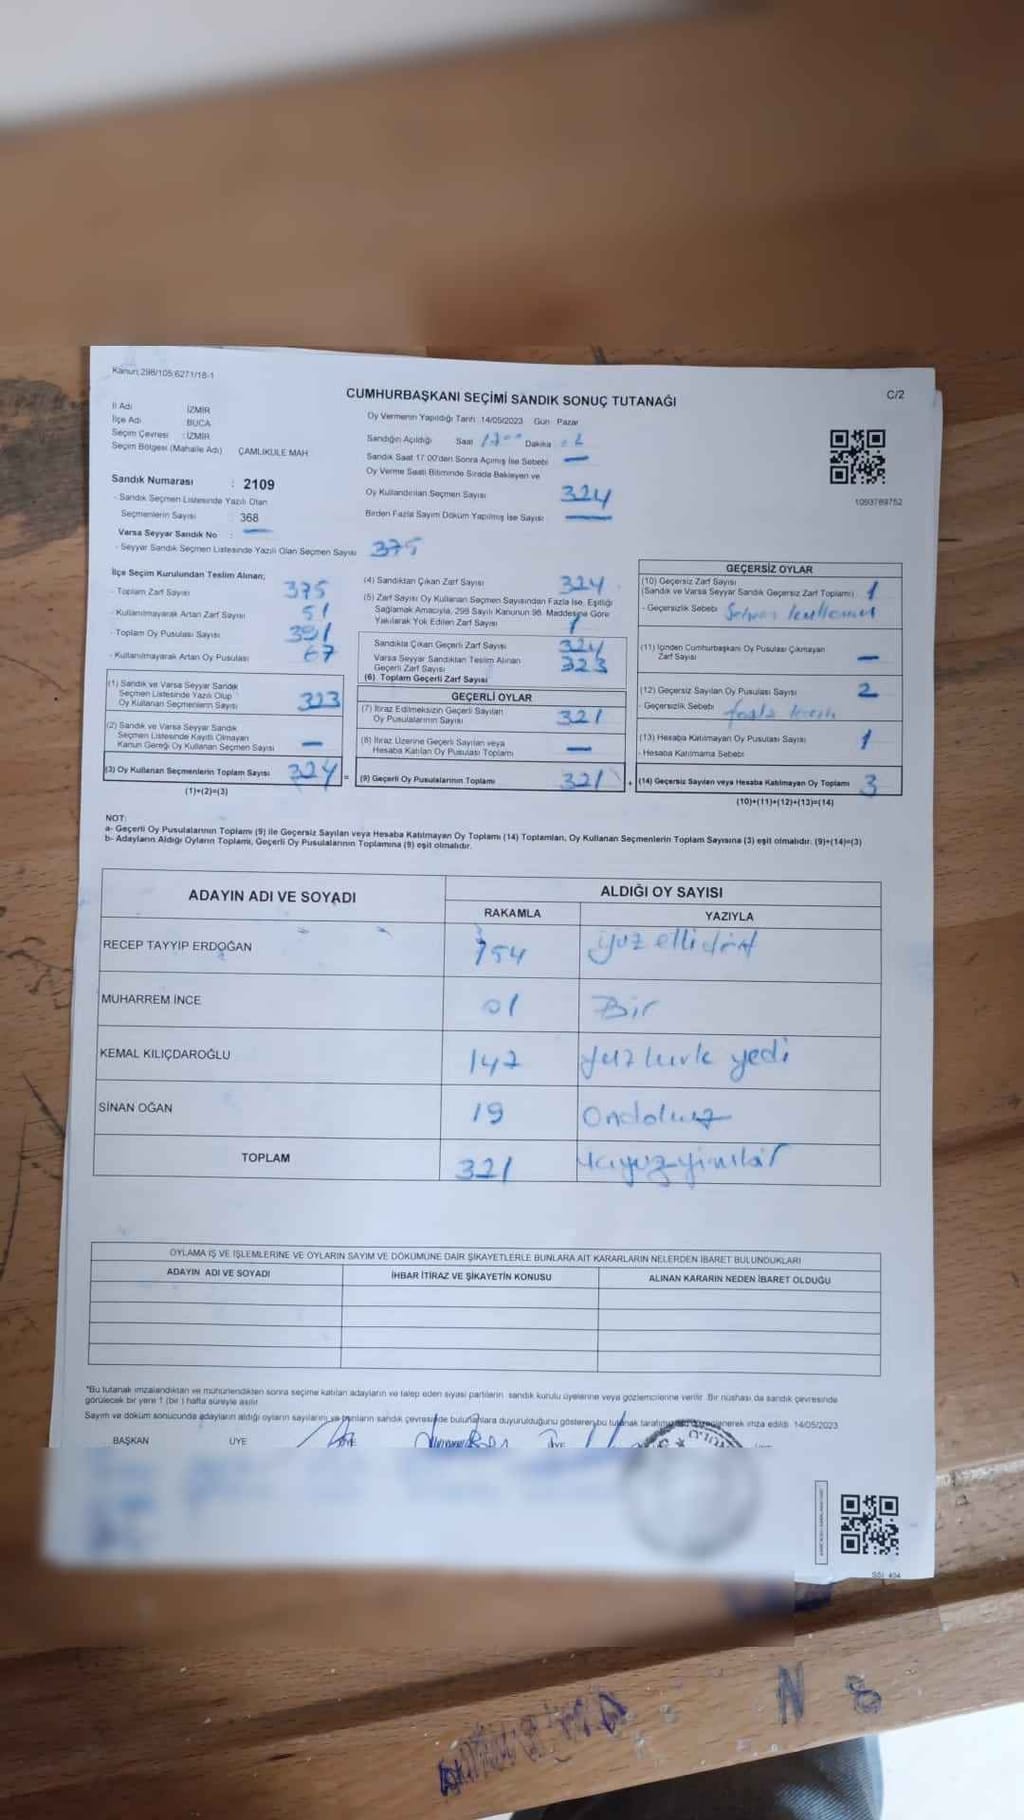 Kanun:298/105;6271/18-1
CUMHURBAŞKANI SEÇİMİ SANDIK SONUÇ TUTANAĞI
C/2
İl Adı İZMİR
İlçe Adı BUCA
Seçim Çevresi : İZMİR
Seçim Bölgesi (Mahalle Adı) ÇAMLIKULE MAH
Sandık Numarası : 2109
- Sandık Seçmen Listesinde Yazılı Olan
Seçmenlerin Sayısı : 368
Varsa Seyyar Sandık No : —
- Seyyar Sandık Seçmen Listesinde Yazılı Olan Seçmen Sayısı 375
Oy Vermenin Yapıldığı Tarih :14/05/2023 Gün : Pazar
Sandığın Açıldığı Saat Dakika
Sandık Saat 17:00'den Sonra Açılmış İse Sebebi —
Oy Verme Saati Bitiminde Sırada Bekleyen ve
Oy Kullandırılan Seçmen Sayısı 324
Birden Fazla Sayım Döküm Yapılmış İse Sayısı —
1093789752
İlçe Seçim Kurulundan Teslim Alınan;
- Toplam Zarf Sayısı 375
- Kullanılmayarak Artan Zarf Sayısı 51
- Toplam Oy Pusulası Sayısı 391
- Kullanılmayarak Artan Oy Pusulası 67
(1) Sandık ve Varsa Seyyar Sandık
Seçmen Listesinde Yazılı Olup
Oy Kullanan Seçmenlerin Sayısı 323
(2) Sandık ve Varsa Seyyar Sandık
Seçmen Listesinde Kayıtlı Olmayan
Kanun Gereği Oy Kullanan Seçmen Sayısı —
(3) Oy Kullanan Seçmenlerin Toplam Sayısı 324 =
(1)+(2)=(3)
(4) Sandıktan Çıkan Zarf Sayısı 324
(5) Zarf Sayısı Oy Kullanan Seçmen Sayısından Fazla İse, Eşitliği
Sağlamak Amacıyla, 298 Sayılı Kanunun 98. Maddesine Göre
Yakılarak Yok Edilen Zarf Sayısı 1
Sandıkta Çıkan Geçerli Zarf Sayısı 324
Varsa Seyyar Sandıktan Teslim Alınan
Geçerli Zarf Sayısı 323
(6) Toplam Geçerli Zarf Sayısı
GEÇERLİ OYLAR
(7) İtiraz Edilmeksizin Geçerli Sayılan
Oy Pusulalarının Sayısı 321
(8) İtiraz Üzerine Geçerli Sayılan veya
Hesaba Katılan Oy Pusulası Toplamı —
(9) Geçerli Oy Pusulalarının Toplamı 321 +
GEÇERSİZ OYLAR
(10) Geçersiz Zarf Sayısı
(Sandık ve Varsa Seyyar Sandık Geçersiz Zarf Toplamı) 1
- Geçersizlik Sebebi
(11) İçinden Cumhurbaşkanı Oy Pusulası Çıkmayan
Zarf Sayısı —
(12) Geçersiz Sayılan Oy Pusulası Sayısı 2
- Geçersizlik Sebebi
(13) Hesaba Katılmayan Oy Pusulası Sayısı 1
- Hesaba Katılmama Sebebi
(14) Geçersiz Sayılan veya Hesaba Katılmayan Oy Toplamı 3
(10)+(11)+(12)+(13)=(14)
NOT:
a- Geçerli Oy Pusulalarının Toplamı (9) ile Geçersiz Sayılan veya Hesaba Katılmayan Oy Toplamı (14) Toplamları, Oy Kullanan Seçmenlerin Toplam Sayısına (3) eşit olmalıdır. (9)+(14)=(3)
b- Adayların Aldığı Oyların Toplamı, Geçerli Oy Pusulalarının Toplamına (9) eşit olmalıdır.
ADAYIN ADI VE SOYADI
ALDIĞI OY SAYISI
RAKAMLA YAZIYLA
RECEP TAYYİP ERDOĞAN 154 yüz ellidört
MUHARREM İNCE 01 Bir
KEMAL KILIÇDAROĞLU 147 yüz kırk yedi
SİNAN OĞAN 19 Ondokuz
TOPLAM 321
OYLAMA İŞ VE İŞLEMLERİNE VE OYLARIN SAYIM VE DÖKÜMÜNE DAİR ŞİKAYETLERLE BUNLARA AİT KARARLARIN NELERDEN İBARET BULUNDUKLARI
ADAYIN ADI VE SOYADI İHBAR İTİRAZ VE ŞİKAYETİN KONUSU ALINAN KARARIN NEDEN İBARET OLDUĞU
*Bu tutanak imzalandıktan ve mühürlendikten sonra seçime katılan adayların ve talep eden siyasi partilerin sandık kurulu üyelerine veya gözlemcilerine verilir. Bir nüshası da sandık çevresinde
görülecek bir yere 1 (bir) hafta süreyle asılır.
Sayım ve döküm sonucunda adayların aldığı oyların sayılarını ve bunların sandık çevresinde bulunanlara duyurulduğunu gösteren bu tutanak imza edildi. 14/05/2023
BAŞKAN ÜYE ÜYE ÜYE
N 8